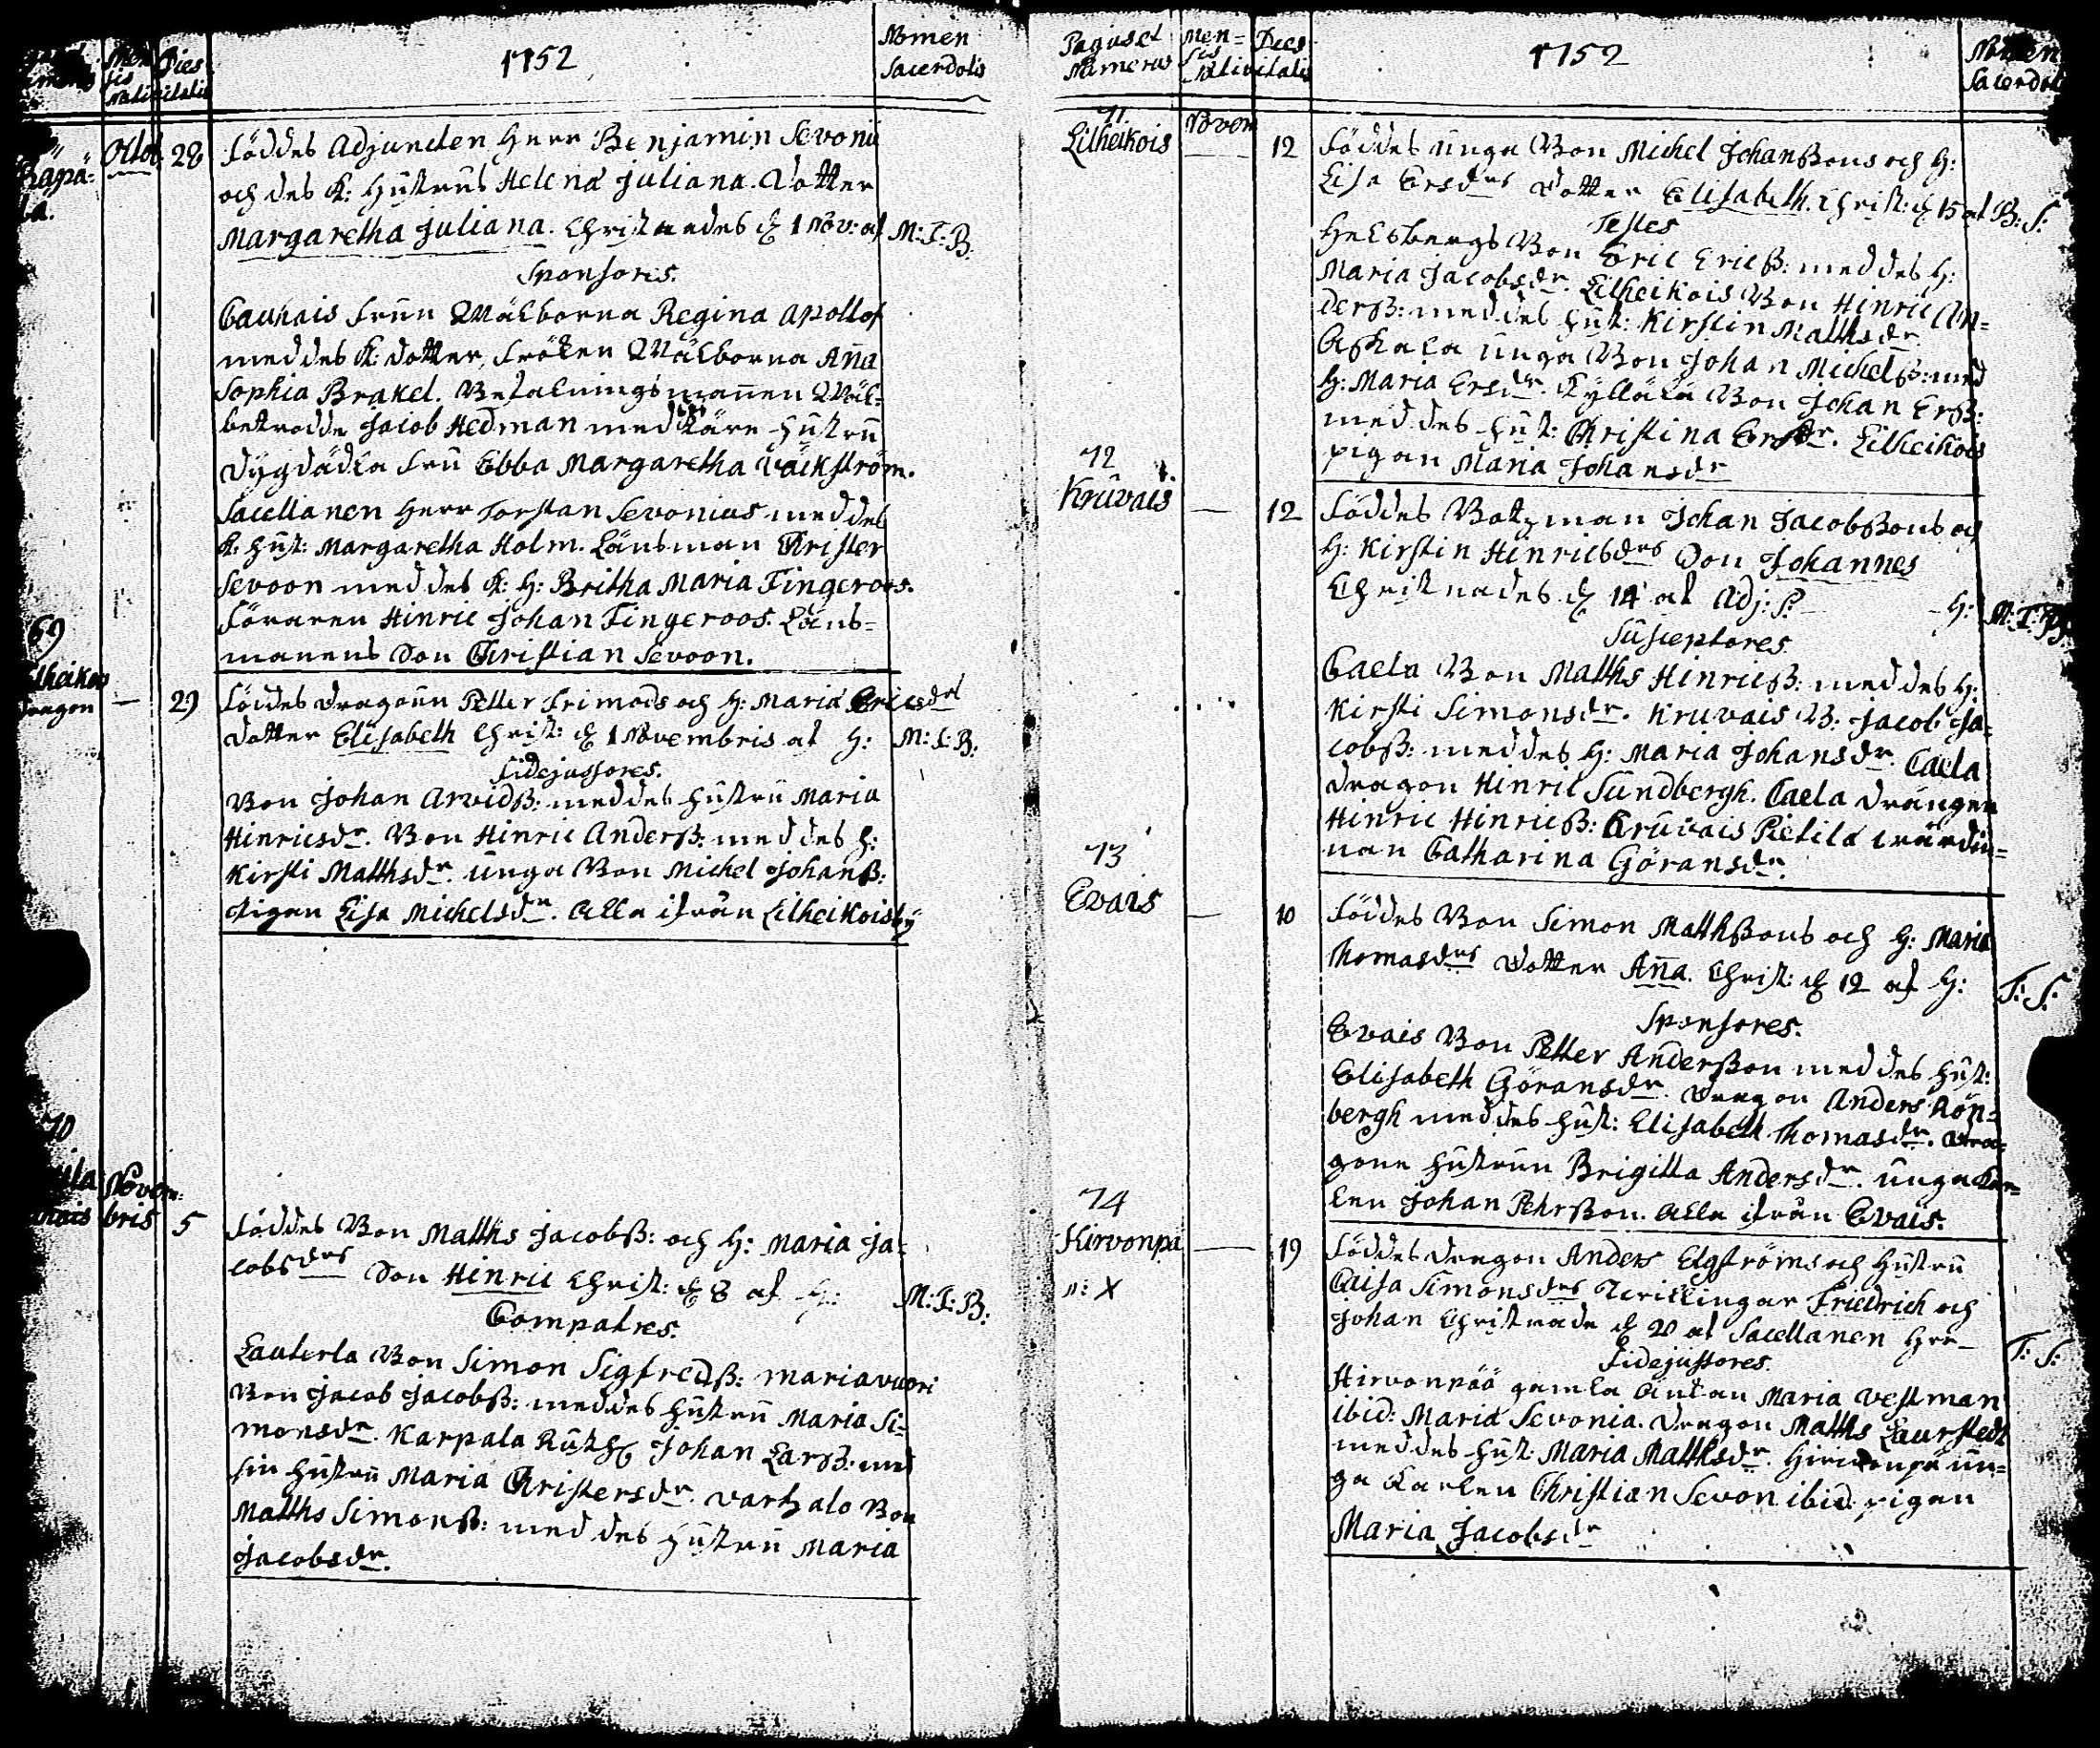 Men
sis
nati
Dies
vitalis
1752
Nomen
Sacerdotis
Octob.
28
Föddes Adjuncten Herr Benjamin Sevonii
och des K: hustrus Helena Juliana. Dotter
Margaretha Juliana. Christnades d 1 Nov: af
M: T: B.
Sponsores.
Cauhais Frun Wälborna Regina Apollof
med des K: dotter, Fröken Wälborna Anna
Sophia Brakel. Betalningsmannen Wäl=
betrodde Jacob Hedman med kära hustru
Dygdädla fru Ebba Margaretha Väckström.
Sacellanen Herr Torstan Sevonius med des
K: hust: Margaretha Holm. Länsman Christer
Sevoon med des K: H: Britha Maria Fingeroos.
Föraren Hinric Johan Fingeroos. Läns=
manens Son Christian Sevoon.
69
29
Föddes dragoun Petter Frimods och H: Maria Ericsdrs
dotter Elisabeth Christ: d 1 Novembris af H:
M: T: B:
Fidejussores.
Bon Johan Arvidß: med des hustru Maria
Hinricsdr. Bon Hinric Anderß: med des H:
Kirsti Matthsdr. unga Bon Michel Johanß:
Pigan Lisa Michelsdr. Alla ifrån Lilheikois by
70
Novem:
bris
5
Föddes Bon Matths Jacobß: och H: Maria Ja=
cobsdrs Son Hinric Christ: d 8 af H:
M: T: B:
Compatres.
Lauterla Bon Simon Sigfredß: Mariavuori
Bon Jacob Jacobß: med des hustru Maria Si=
monsdr. Karpala Johan Larß: med
sin hustru Maria Christersdr. Vartzalo Bon
Matths Simonß: med des hustru Maria
Jacobsdr.
Pagus et
Numerus
Men=
sis
Nati
Dies
vitalis
1752
Nomen
Sacerdot
71.
Lilheikois
Novem
12
Föddes unga Bon Michel Johanßons och H:
Lisa Ersdrs dotter Elisabeth. Christ: d 15 af
B: S.
Testes
Helsbergs Bon Eric Ericß: med des H:
Maria Jacobsdr. Lilheikois Bon Hinric An=
derß: med des hust: Kirstin Matthsdr
unga Bon Johan Michelß: med
H: Maria Ersdr. Kyllälä Bon Johan Erß:
med des hust: Christina Ersdr. Lilheikois
pigan Maria Johansdr
72
Kruvais
12
Föddes Batzman Johan Jacobßons och
H: Kirstin Hinricsdrs Son Johannes
Christnades d 14 af Adj: S:
H:
M: T: B:
Susceptores.
Caela Bon Matths Hinricß: med des H:
Kirsti Simonsdr. Kruvais B: Jacob Ja=
cobß: med des H: Maria Johansdr. Caela
dragon Hinric Sundbergh. Caela drängen
Hinric Hinricß: Kruvais Pietilä wärdin=
nan Catharina Göransdr.
73
Evais
10
Föddes Bon Simon Matthßons och H: Maria
Thomasdrs dotter Anna. Christ: d 12 af H:
T: S:
Sponsores.
Evais Bon Petter Anderßon med des hust:
Elisabeth Göransdr. Dragon Anders Rön=
bergh med des hust: Elisabeth Thomasdr. Dra=
goun hustrun Brigitta Andersdr. unga Kar=
len Johan Pehrßon. Alla ifrån Evais.
74
Hirvonpä
n: X
19
Föddes dragon Anders Elgströms och hustru
Caisa Simonsdrs Twillingar Friedrich och
Johan Christnade d 20 af Sacellanen Hrr
T: S:
Fidejussores.
Hirvonpää gamla änkan Maria Vestman
ibid: Maria Sevonia. Dragon Matths Laurstedt
med des hust: Maria Matthsdr. Hirvonpä un=
ga Karlen Christian Sevon ibid: pigan
Maria Jacobsdr